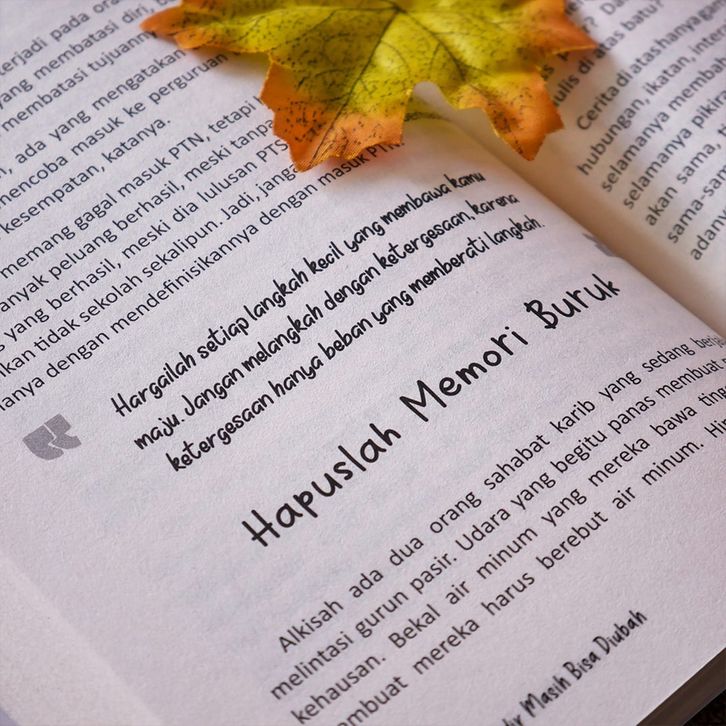 terjadi pada orang
yang membatasi diri,
membatasi tujuann
, ada yang mengatakan
mencoba masuk ke perguruan
kesempatan, katanya.
memang gagal masuk PTN, tetapi
banyak peluang berhasil, meski tanpa
yang berhasil, meski dia lulusan PTS
kan tidak sekolah sekalipun. Jadi, jang
anya dengan mendefinisikannya dengan masuk PTN.
Hargailah setiap langkah kecil yang membawa kamu
maju. Jangan melangkah dengan ketergesaan, karena
ketergesaan hanya beban yang memberati langkah.
Hapuslah Memori Buruk
Alkisah ada dua orang sahabat karib yang sedang berj
melintasi gurun pasir. Udara yang begitu panas membuat
kehausan. Bekal air minum yang mereka bawa ting
mbuat mereka harus berebut air minum. Hin
Masih Bisa Diubah
ulis di atas batu?
Cerita di atas hanya gan
hubungan, ikatan, inte
selamanya membawa
selamanya pikir
akan sama,
sama-sam
adany